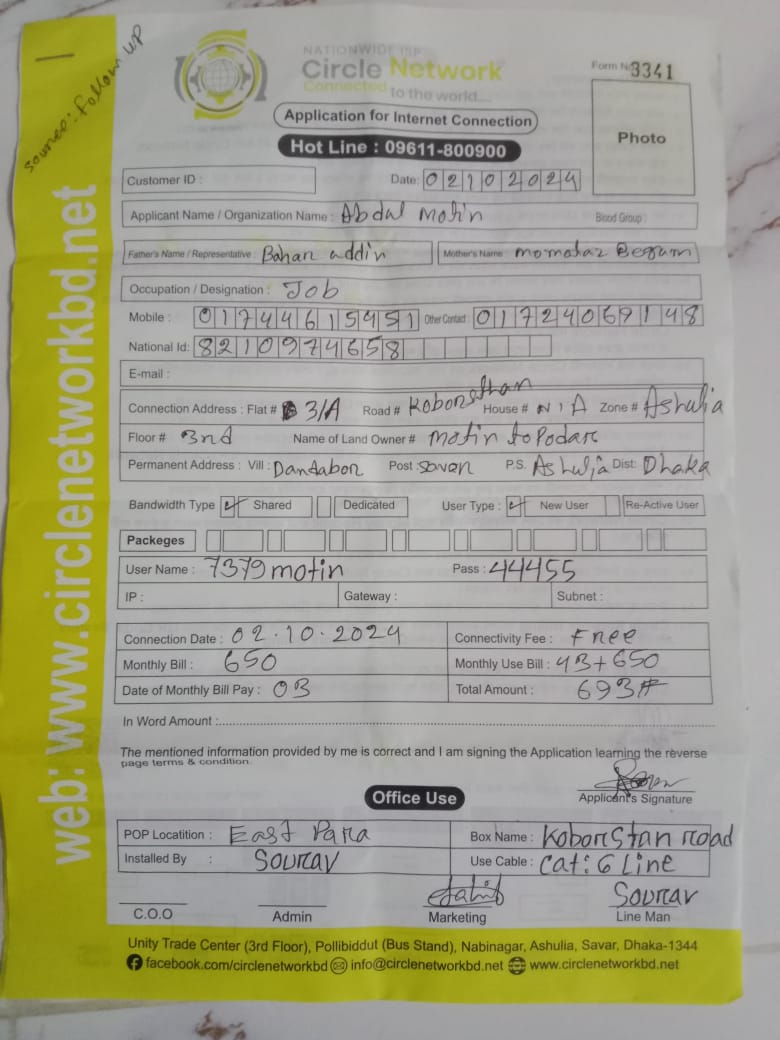 Source: Follow UP
NATIONWIDE ISP
Circle Network
Connected to the world...
Form No 3341
Application for Internet Connection
Hot Line : 09611-800900
Photo
Customer ID :
Date: 02102024
Applicant Name / Organization Name : Abdul Motin Blood Group :
Father's Name / Representative : Bahar addin Mother's Name : momotaz Begum
Occupation / Designation : Job
Mobile : 01744615451 Other Contact : 01724069148
National Id: 8210974658
E-mail :
Connection Address : Flat # 3/A Road # Koborsthan House # N/A Zone # Ashulia
Floor # 3nd Name of Land Owner # Motin to Podar
Permanent Address : Vill : Dandabor Post : Savar P.S. Ashulia Dist: Dhaka
Bandwidth Type ✓ Shared Dedicated User Type : ✓ New User Re-Active User
Packeges
User Name : 7379motin Pass : 44455
IP : Gateway : Subnet :
Connection Date : 02.10.2024 Connectivity Fee : Free
Monthly Bill : 650 Monthly Use Bill : 43+650
Date of Monthly Bill Pay : 03 Total Amount : 693#
In Word Amount :
The mentioned information provided by me is correct and I am signing the Application learning the reverse
page terms & condition.
Applicant's Signature
Office Use
POP Locatition : East Para Box Name : Koborstan road
Installed By : Sourav Use Cable : Cat:6 Line
Sourav
C.O.O Admin Marketing Line Man
Unity Trade Center (3rd Floor), Pollibiddut (Bus Stand), Nabinagar, Ashulia, Savar, Dhaka-1344
facebook.com/circlenetworkbd info@circlenetworkbd.net www.circlenetworkbd.net
web: www.circlenetworkbd.net